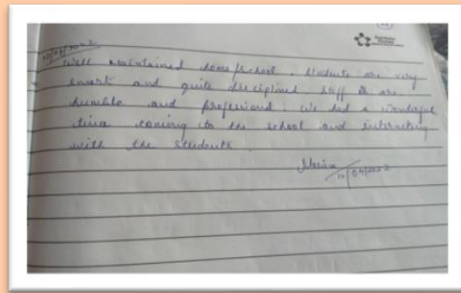 Well maintained school. Students are very
smart and quite disciplined staff are
humble and professional. We had a wonderful
time coming to the school and interacting
with the students.